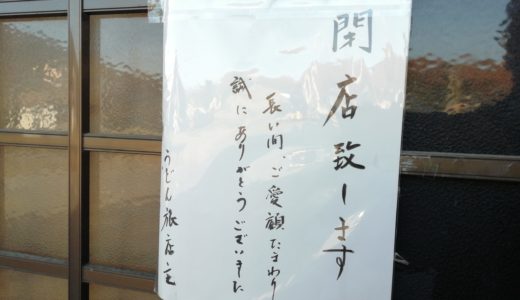 閉店致します
長い間、ご愛顧たまわり
誠にありがとうございました
うどん旅店主